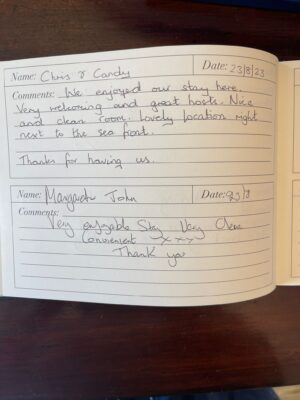 Name: Chris & Candy Date: 23/8/23
Comments: We enjoyed our stay here.
Very welcoming and great hosts. Nice
and clean room. Lovely location right
next to the sea front.
Thanks for having us.
Name: Margaret John Date: 23/8
Comments:
Very enjoyable Stay Very Clean
Convenient xxx
Thank you